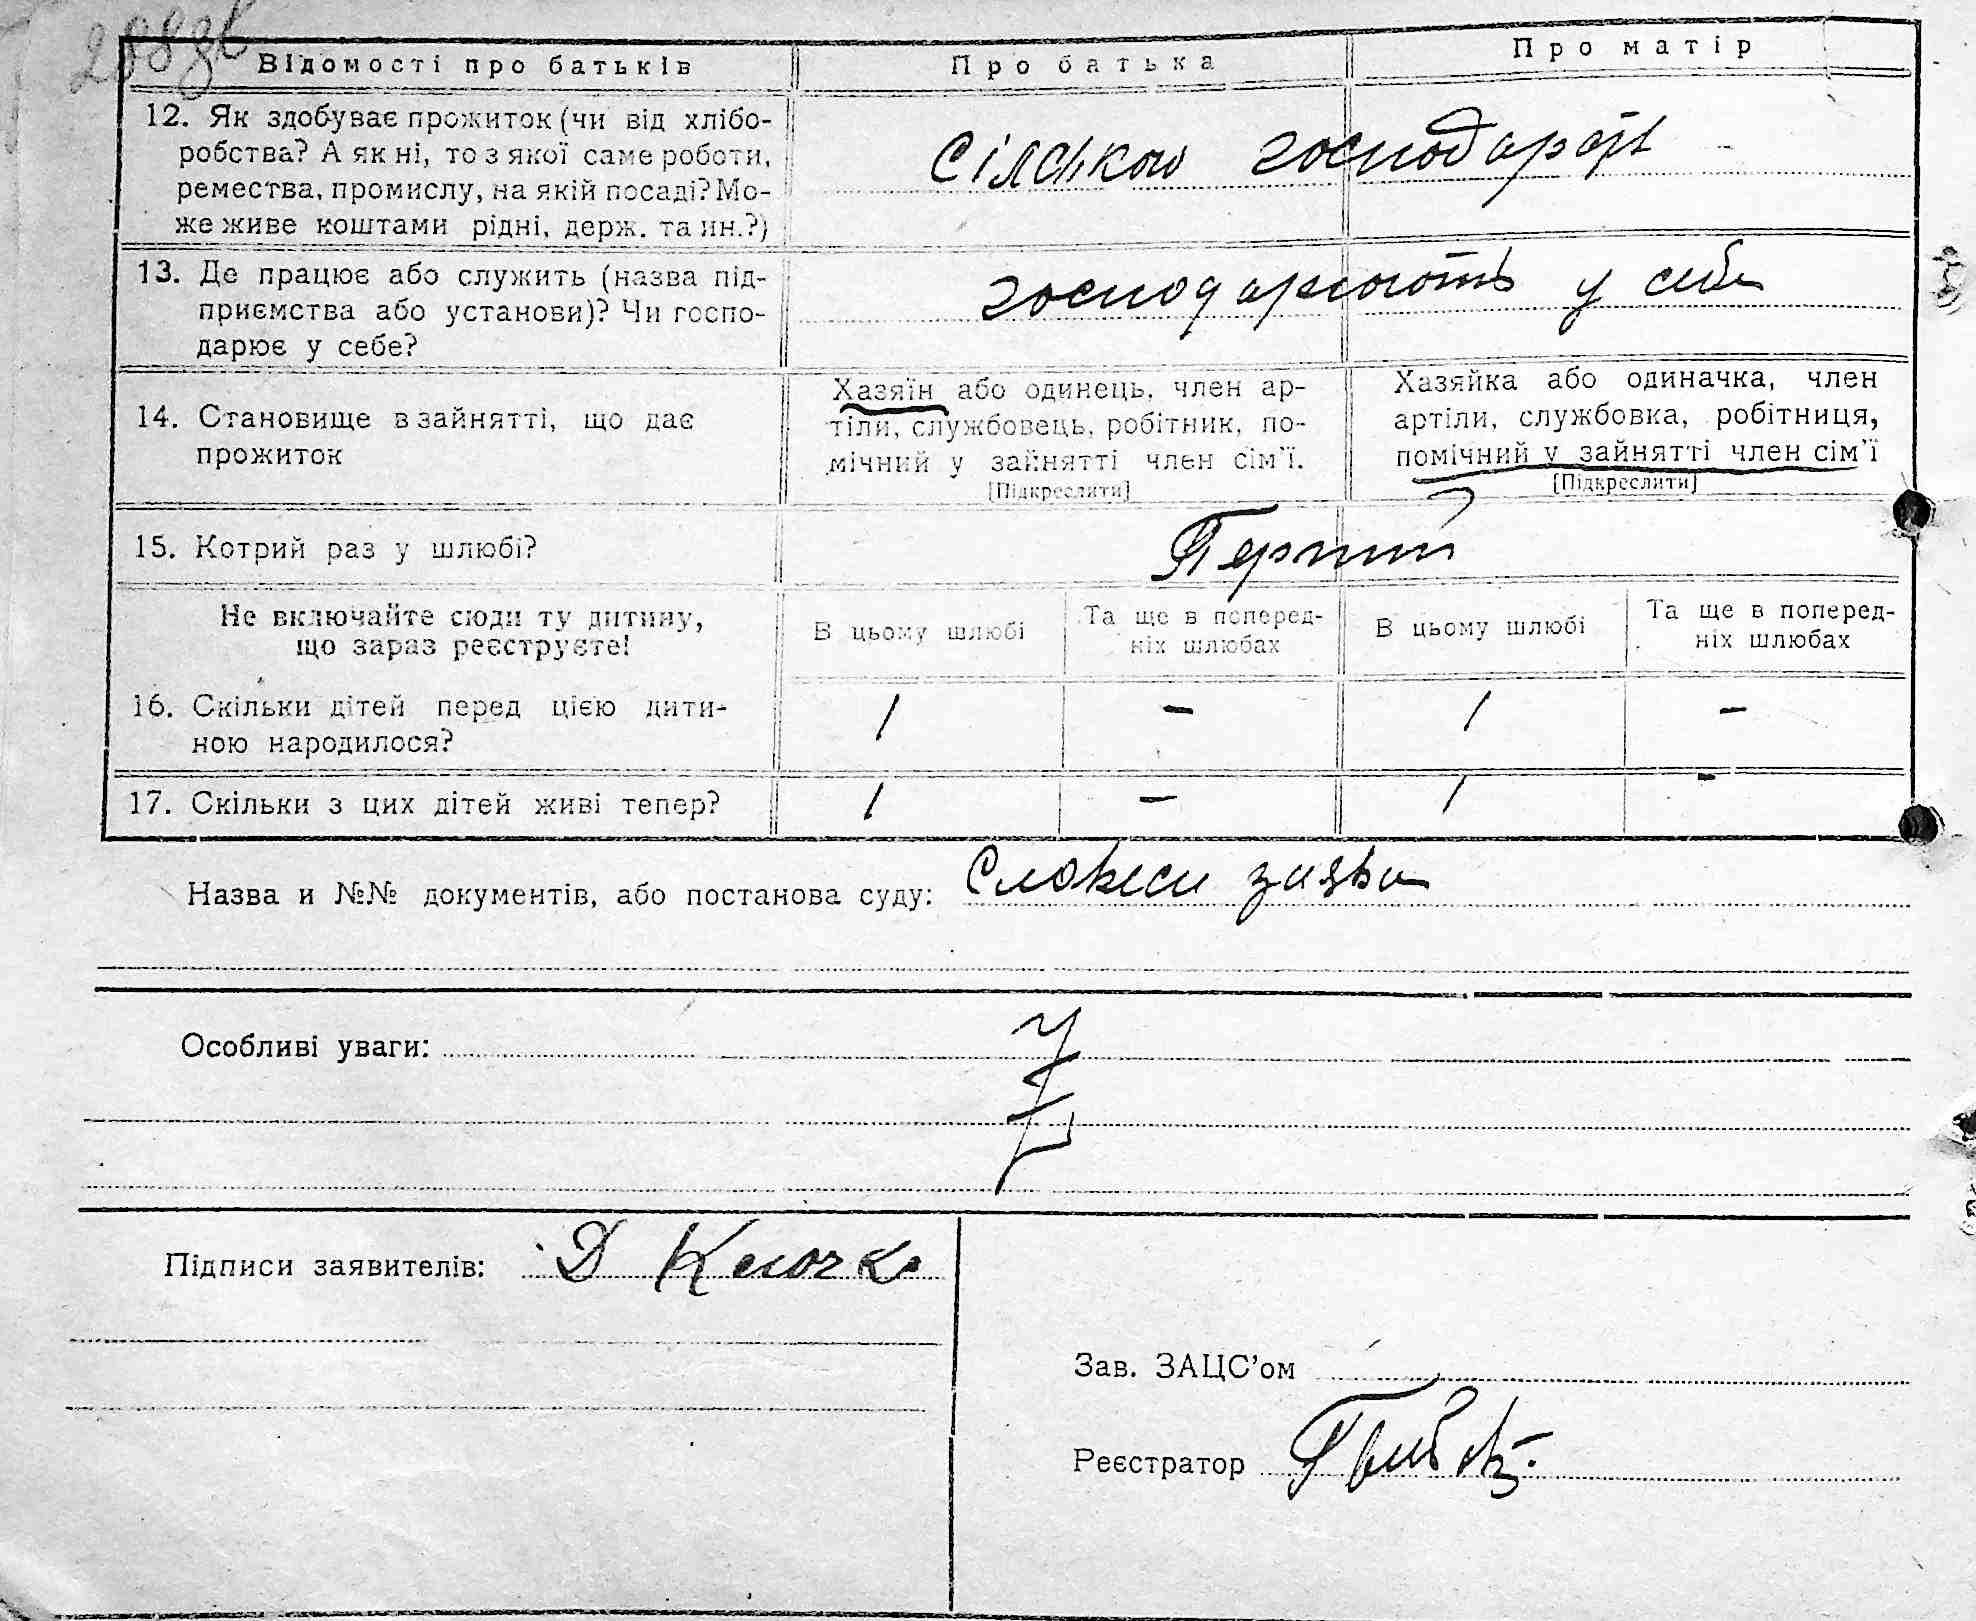 288зв
Відомості про батьків
Про батька
Про матір
12. Як здобуває прожиток (чи від хлібо-
робства? А як ні, то з якої саме роботи,
ремества, промислу, на якій посаді? Мо-
же живе коштами рідні, держ. та ин.?)
Сільським господарств
13. Де працює або служить (назва під-
приємства або установи)? Чи госпо-
дарює у себе?
господарюють у себе
14. Становище в зайнятті, що дає
прожиток
Хазяїн або одинець, член ар-
тіли, службовець, робітник, по-
мічний у зайнятті член сім'ї.
[Підкреслити]
Хазяйка або одиначка, член
артіли, службовка, робітниця,
помічний у зайнятті член сім'ї
[Підкреслити]
15. Котрий раз у шлюбі?
Перший
Не включайте сюди ту дитину,
що зараз реєструєте!
В цьому шлюбі
Та ще в поперед-
ніх шлюбах
В цьому шлюбі
Та ще в поперед-
ніх шлюбах
16. Скільки дітей перед цією дити-
ною народилося?
1 - 1 -
17. Скільки з цих дітей живі тепер?
1 - 1 -
Назва и №№ документів, або постанова суду: заява
Особливі уваги:
Підписи заявителів: Д Клочко
Зав. ЗАЦС'ом
Реєстратор